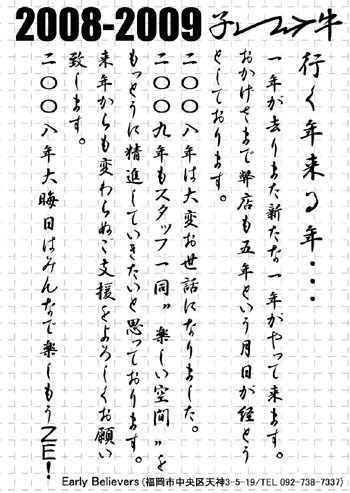 2008-2009 子 牛
行く年来る年・・・
一年が去りまた新たな一年がやって来ます。
おかげさまで弊店も五年という月日が経とう
としております。
二〇〇八年は大変お世話になりました。
二〇〇九年もスタッフ一同〝楽しい空間〟を
もっとうに精進していきたいと思っております。
来年からも変わらぬご支援をよろしくお願い
致します。
二〇〇八年大晦日はみんなで楽しもうZE!
Early Believers (福岡市中央区天神3-5-19/TEL 092-738-7337)